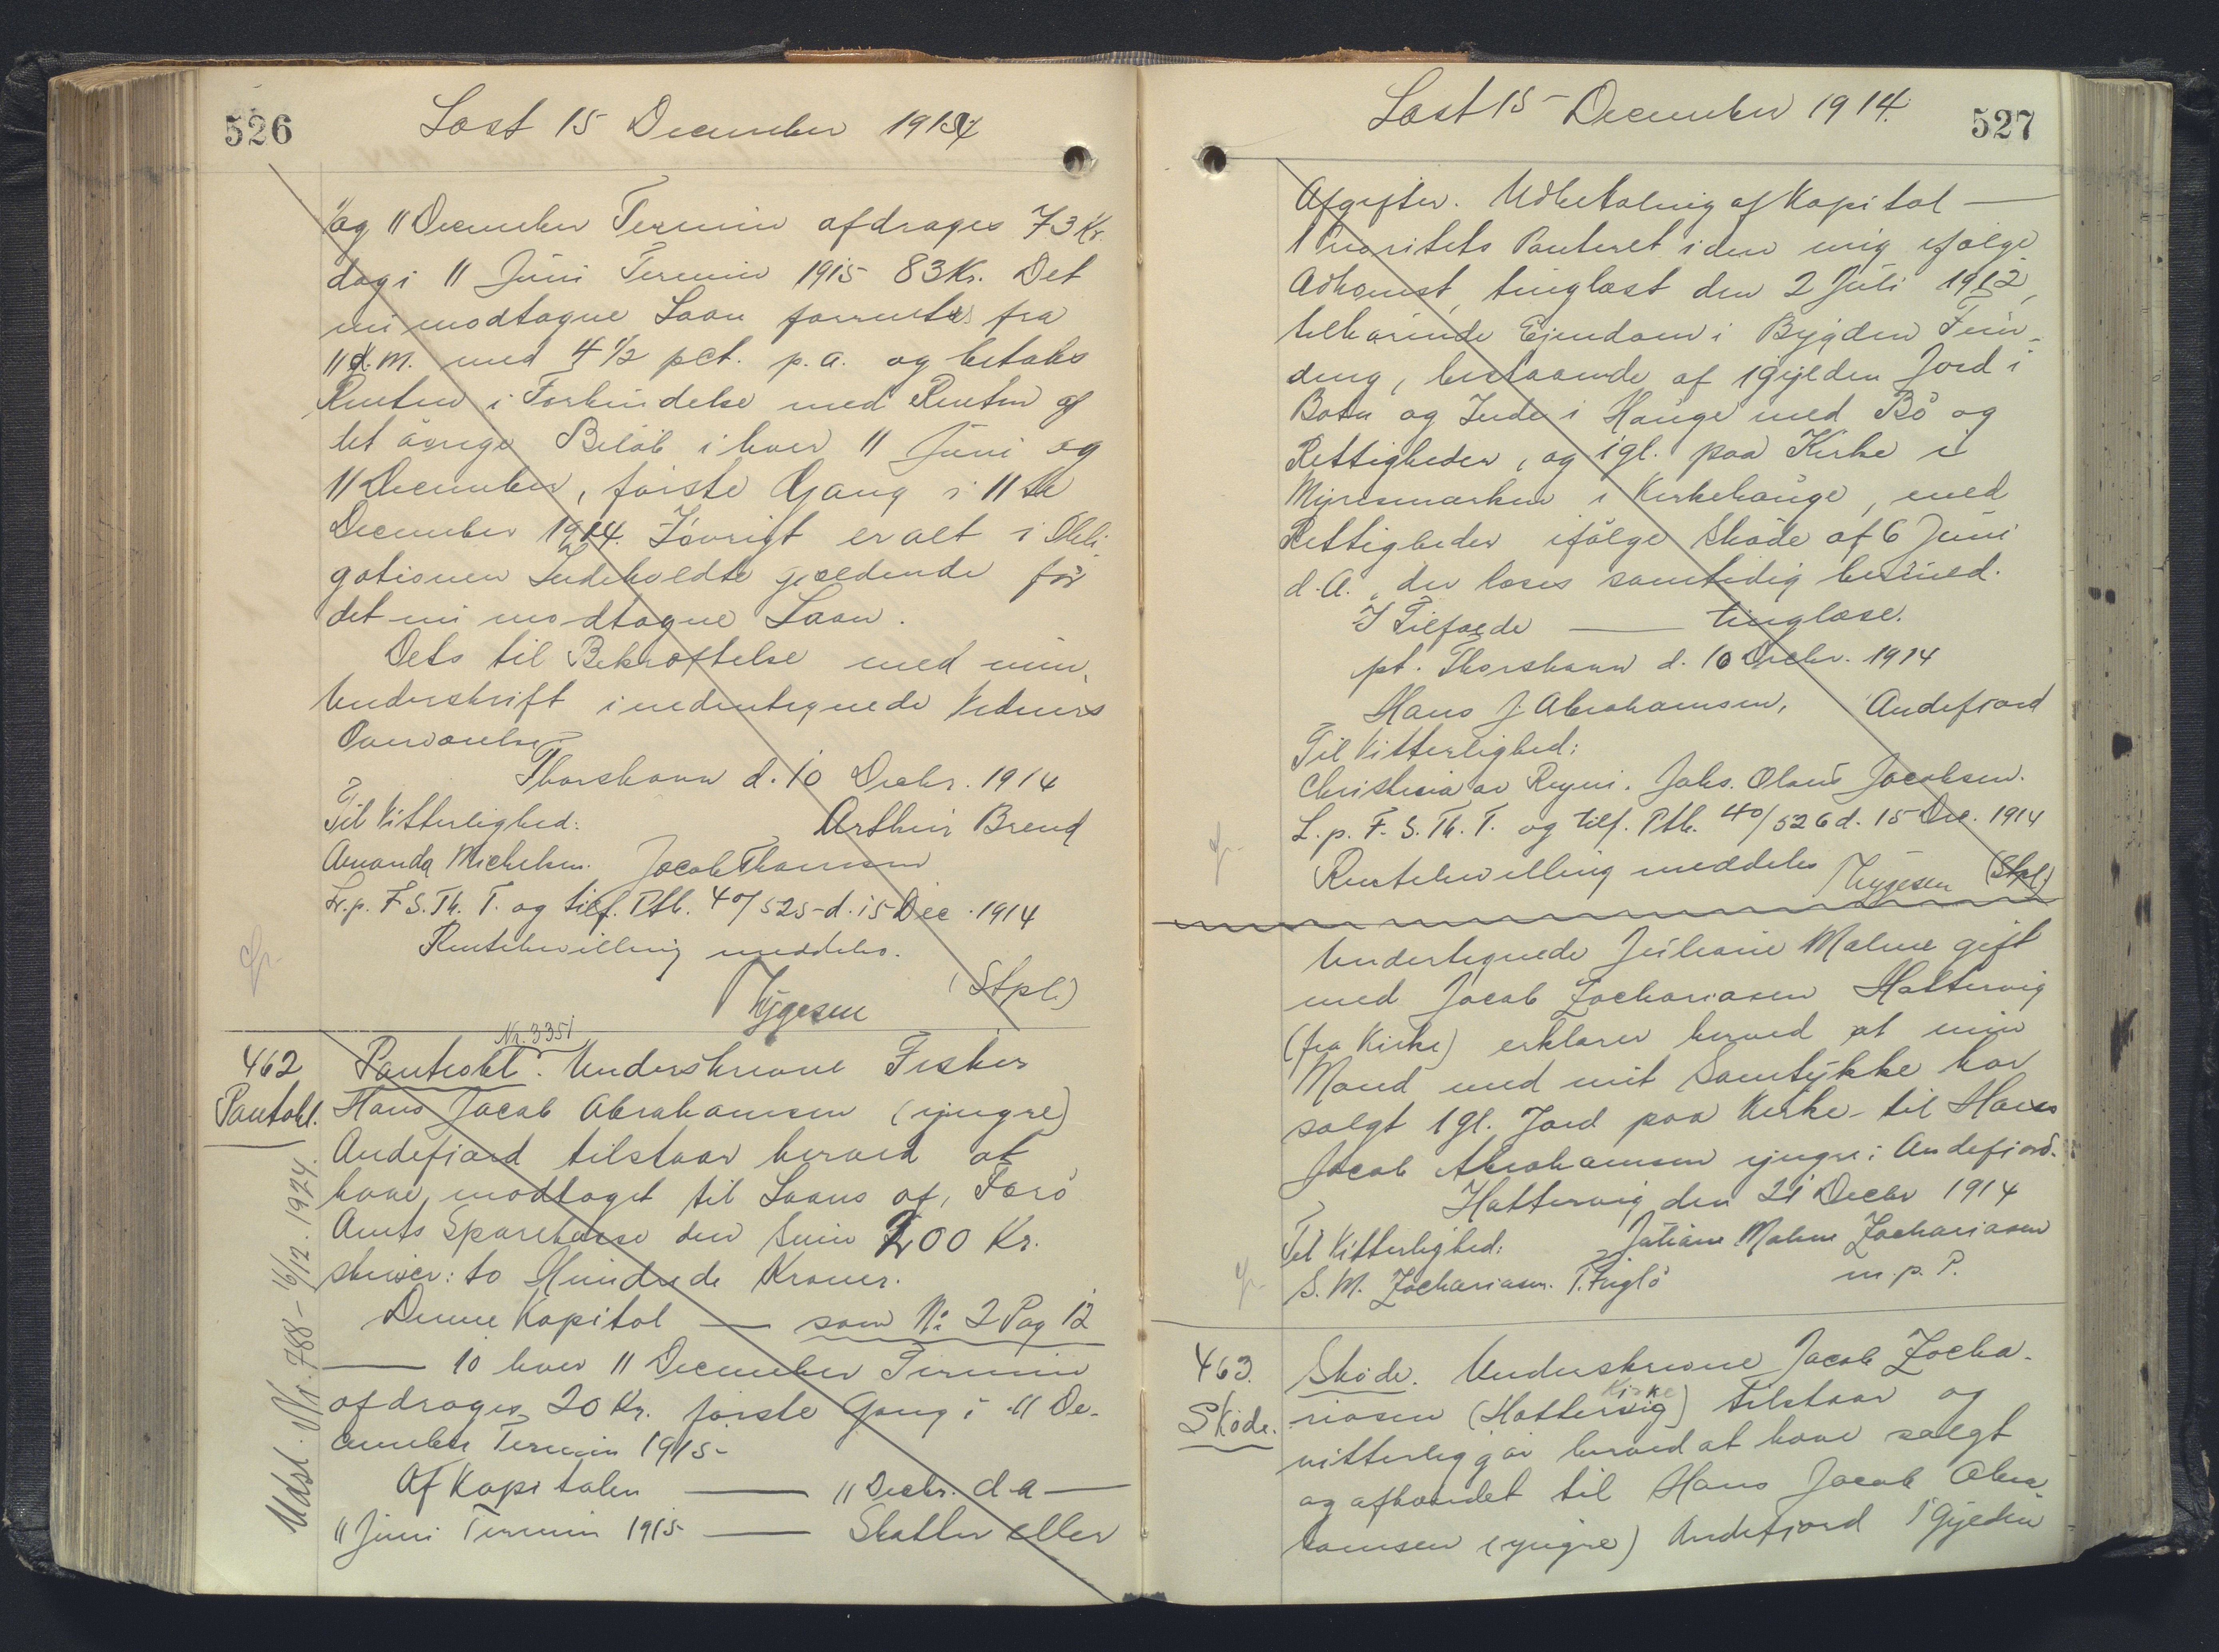 526
Læst 15 December 1914
og 11 December Termin afdrages 73 Kr.
dog i 11 Juni Termin 1915 83 Kr. Det
nu modtagne Laan forrentes fra
11 d. M. med 4 1/2 pct. p. a. og betales
Renten i Forbindelse med Renten af
det øvrige Beløb i hver 11 Juni og
11 December, første Gang i 11te
December 1914. Iøvrigt er alt i Obli-
gationen Indeholdte gældende for
det nu modtagne Laan.
Dets til Bekræftelse med min
Underskrift i nedentegnede Vidners
Overværelse
Thorshavn d. 10 Decbr. 1914
Til Vitterlighed: Arthur Brend
Amanda Michelsen. Jacob Thomsen
L. p. F. S. Th. T. og tilf. Ptb. 40/525 d. 15 Dec. 1914
Rentebevilling meddeles.
Tygesen (Stpl.)
Nr. 3351
462 Pantobl. Underskrevne Fisker
Pantobl. Hans Jacob Abrahamsen (yngre)
Andefjord tilstaar herved at
have modtaget til Laans af Færø
Amts Sparekasse den Sum 200 Kr.
skriver: to Hundrede Kroner.
Denne Kapital — som No 2 Pag 12
— 10 hver 11 December Termin
afdrages 20 Kr. første Gang i 11 De-
cember Termin 1915-
Af Kapitalen — 11 Decbr. d. A —
11 Juni Termin 1915 — Skatter eller
Udsl. Nr. 788 - 16/12. 1924.
Læst 15 - December 1914.
527
Afgifter. Udbetaling af Kapital —
1 Prioritets Panteret i den mig ifølge
Adkomst, tinglæst den 2 Juli 1912,
tilhørende Ejendom i Bygden Fun-
ding, bestaaende af 1 Gylden Jord i
Botn og Inde i Hauge med Bø og
Rettigheder, og 1 gl. paa Kirke i
Myremærken i Kirkehauge, med
Rettigheder ifølge Skøde af 6 Juni
d. A., der læses samtidig hermed.
I Tilfælde — tinglæse.
pt. Thorshavn d. 10 Decbr. 1914
Hans J. Abrahamsen, Andefjord
Til Vitterlighed:
Christina av Reyni. Johs. Olaus Jacobsen.
L. p. F. S. Th. T. og tilf. Ptb. 40/526 d. 15 Dec. 1914
Rentebevilling meddeles Tygesen (Stpl.)
Undertegnede Juliane Malene gift
med Jacob Zachariasen Hattervig
(fra Kirke) erklærer herved at min
Mand med mit Samtykke har
solgt 1 gl. Jord paa Kirke til Hans
Jacob Abrahamsen yngre i Andefjord.
Hattervig den 21 Decbr 1914
Til Vitterlighed: Juliane Malene Zachariasen
S. M. Zachariasen. T. Fuglø m. p. P.
463. Skøde. Underskrevne Jacob Zacha-
Kirke
Skøde. riasen (Hattervig) tilstaar og
vitterliggør herved at have solgt
og afhændet til Hans Jacob Abra-
hamsen (yngre) Andefjord 1 Gylden